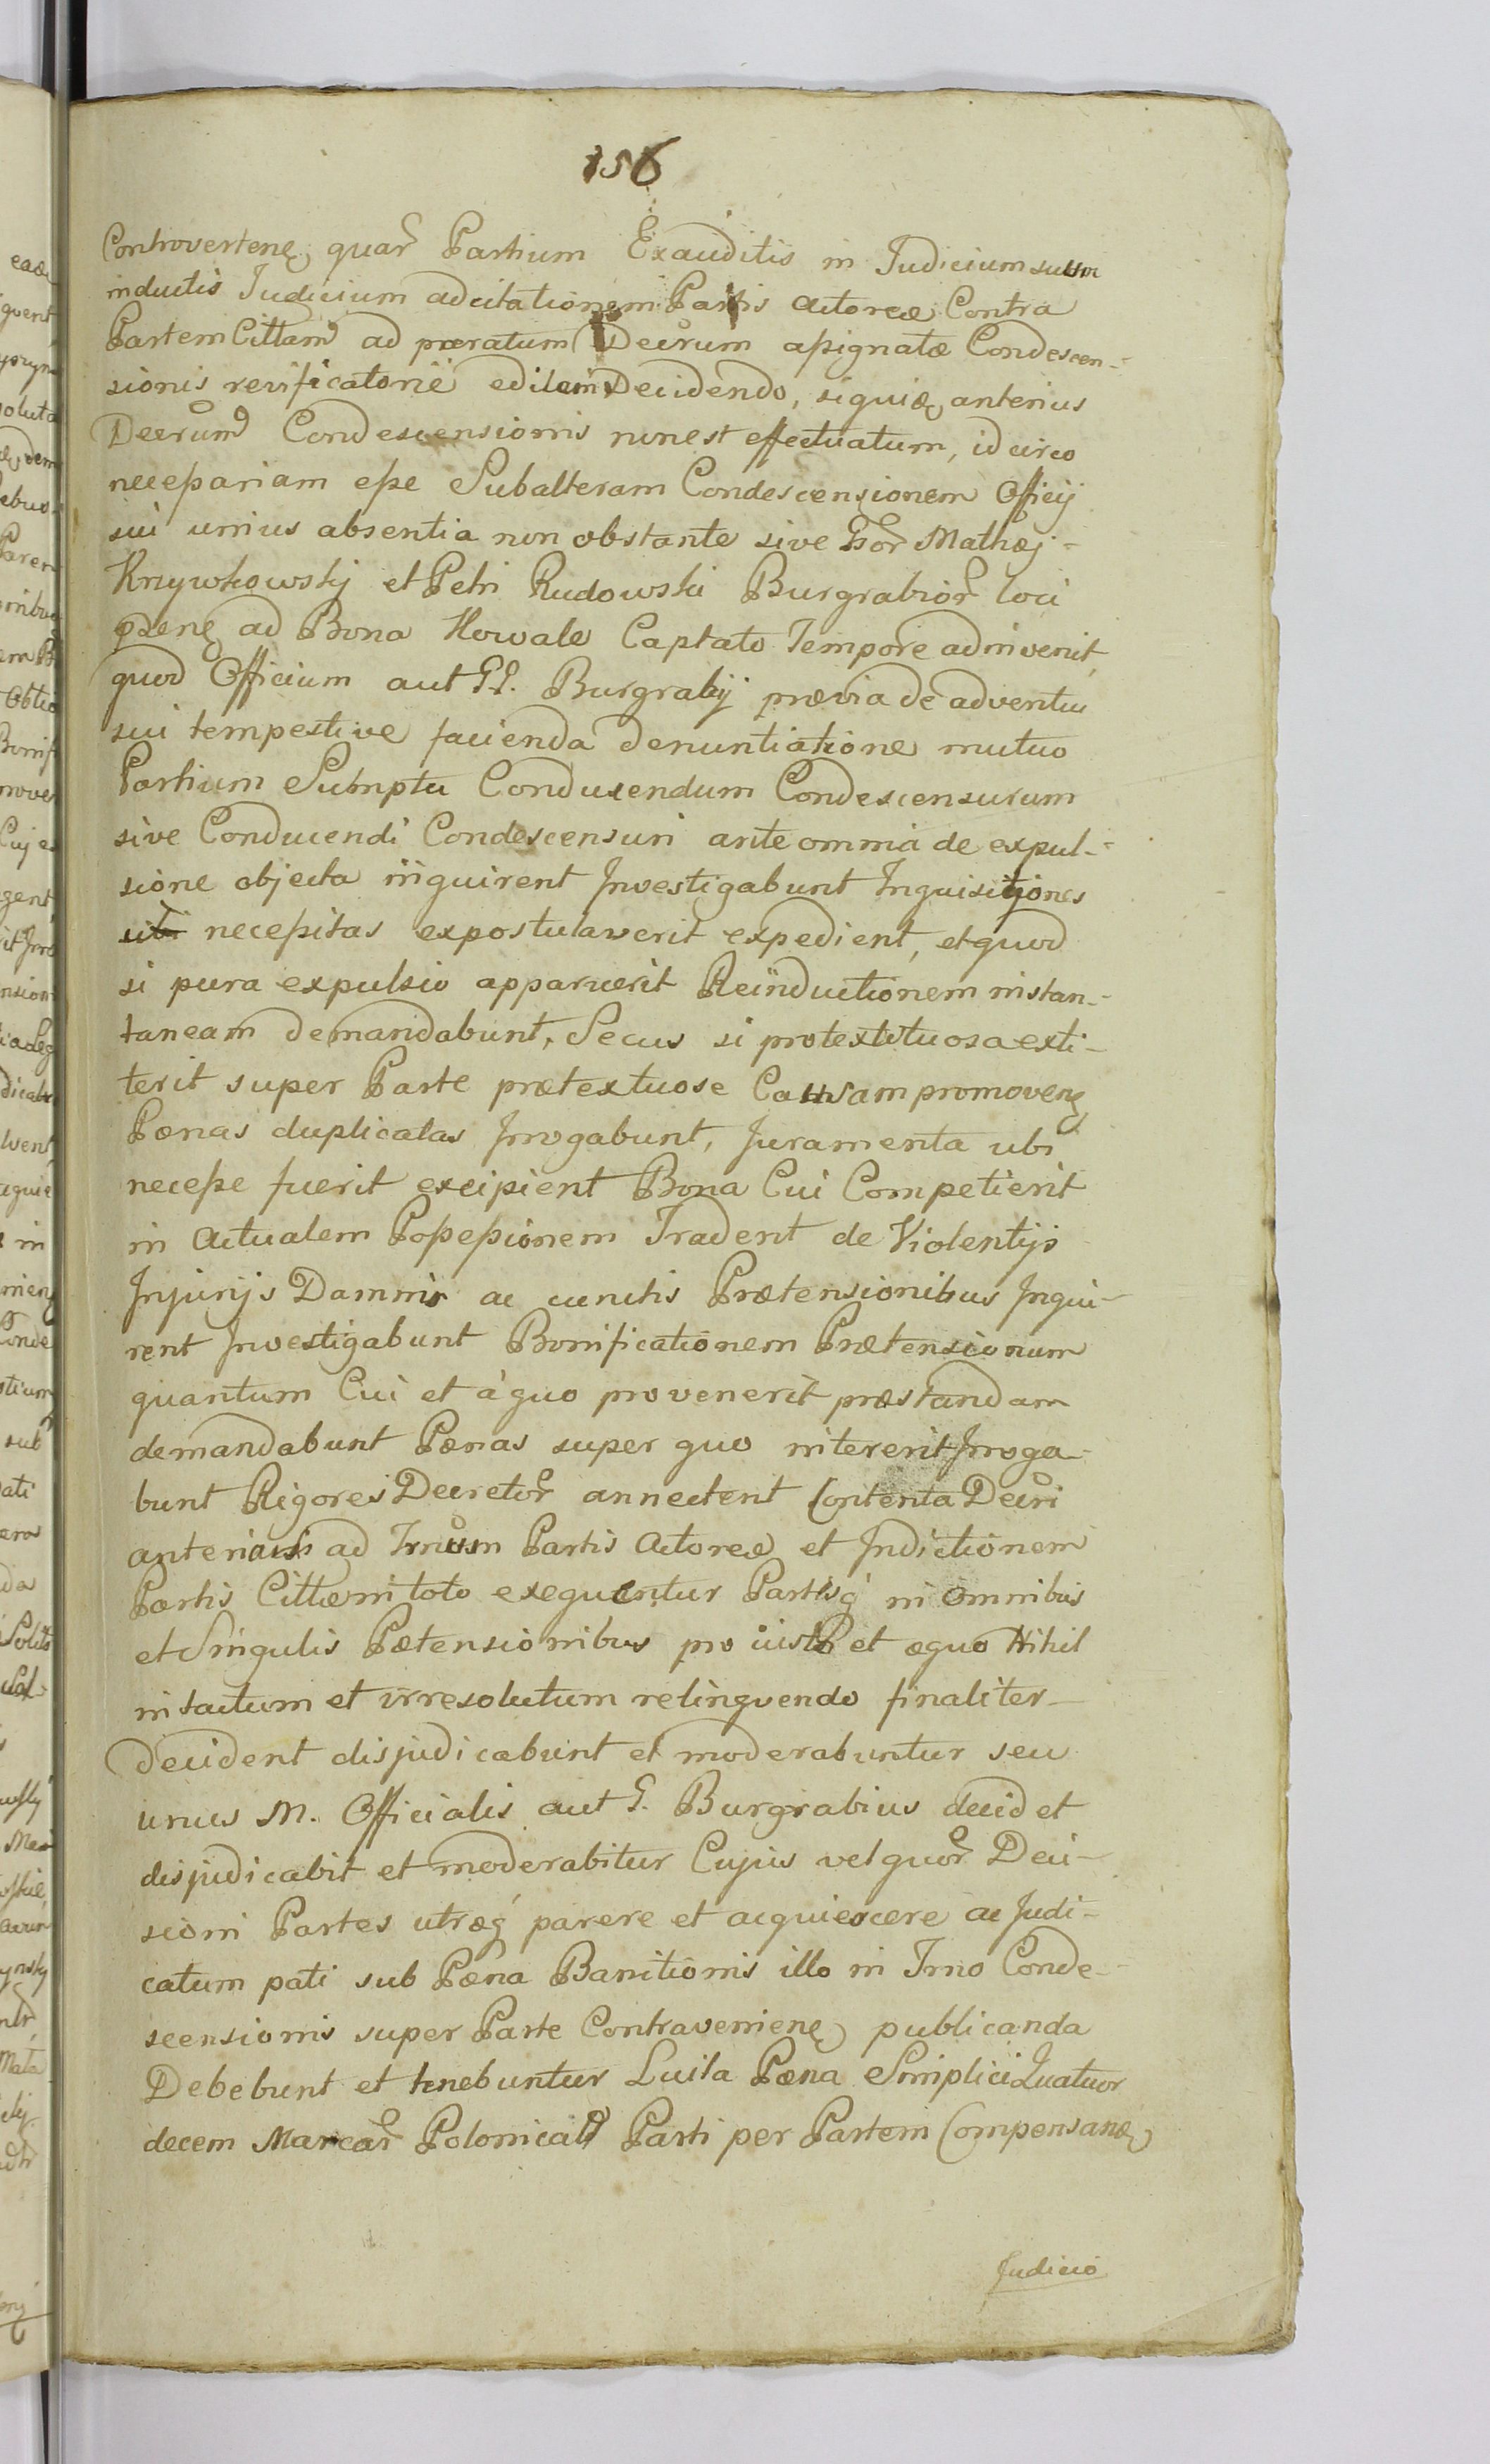 156
Controverten. quar Partium Exauditis in Judicium suum
inductis Judicium ad citationem Partis Actoreæ Contra
Partem Cittam ad præratum Decrum assignatæ Condescen-
sionis verificatoriè Decidendo, siquid anterius
Decrum Condescensionis non est effectuatum, idcirco
necessariam esse Subalteram Condescensionem Officij
sui unius absentia non obstante sive Gsor Mathæj
Krzywkowskj et Petri Rudowski Burgrabior loci
ad Bona Kowale Captato Tempore adinvenit,
quod Officium aut GG. Burgrabij prævia de adventu
sui tempestive facienda denuntiatione mutuo
Partium Sumptu Conducendum Condescensurum
sive Conducendi Condescensuri ante omnia de expul-
sione objecta inquirent Investigabunt Inquisitiones
necessitas expostulaverit expedient, et quod
si pura expulsio apparuerit Reinductionem instan-
taneam demandabunt, Secus si protextituosa exti-
terit super Parte prætextuose Causam promoven
Pœnas duplicatas Irrogabunt, Juramenta ubi
necesse fuerit excipient Bona Cui Competierit
in Actualem Possessionem Tradent de Violentijs
Injurijs Damnis ac cunctis Prætensionibus Inqui-
rent Investigabunt Bonificationem Prætensionum
quantum Cui et à quo provenerit præstandam
demandabunt Pœnas super quo intererit Irroga-
bunt Rigores Decretor annectent Contenta Decri
anterioris ad Trnum Partis Actoreæ et Indictionem
Partis Cittæ in toto exequentur Partesq in Omnibus
et Singulis Pætensionibus pro iusto et æquo Nihil
intactum et irresolutum relinquendo finaliter
decident disjudicabunt et moderabuntur seu
unus M. Officialis aut G. Burgrabius decidet
disjudicabit et moderabitur Cujus vel quor Deci-
sioni Partes utræq parere et acquiescere ac Judi-
catum pati sub Pœna Banitionis illo in Trno Conde-
scensionis super Parte Contravenien publicanda
Debebunt et tenebuntur Luita Pœna Simplici Quatuor
decem Marcar Polonical Parti per Partem Compensan
Judicio